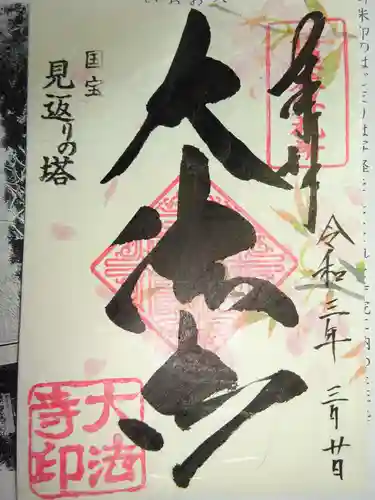 奉拝
令和三年 三月廿日
大法寺
国宝
見返りの塔
大法
寺印